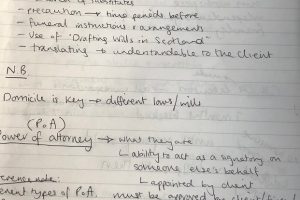 of substitutes
- precaution → time periods before
- funeral instructions & arrangements
- Use of "Drafting Wills in Scotland"
- translating → understandable to the client
NB
Domicile is key → different laws/wills
(PoA)
Power of attorney → what they are
↳ ability to act as a signatory on
someone else's behalf
↳ appointed by client
erence note:
erent types of PoA. must be approved by client/